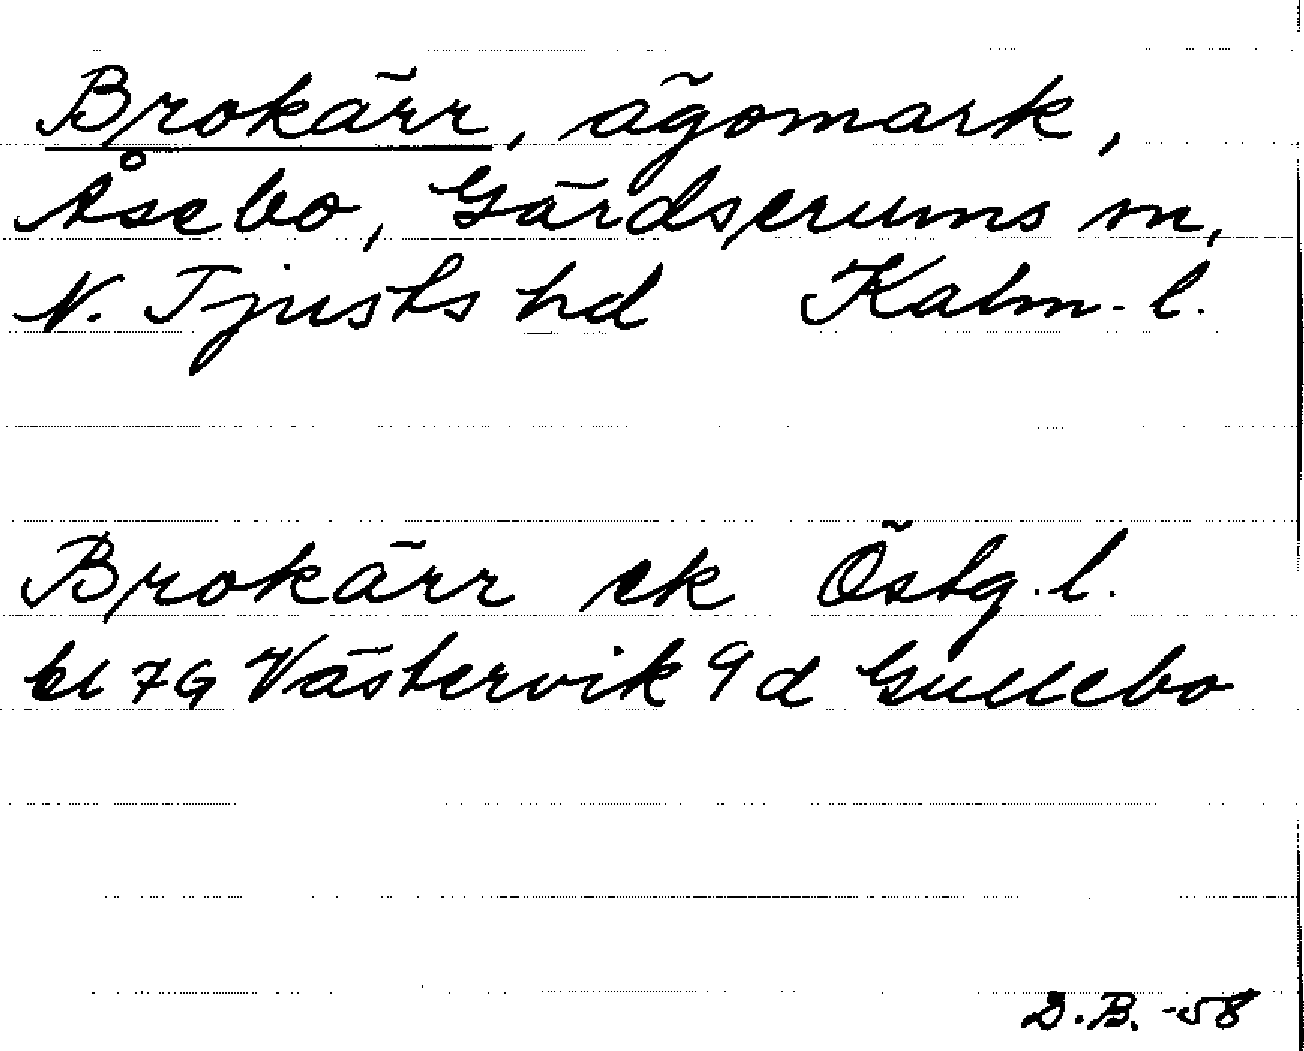 Brokärr, ägomark,
Åsebo, Gärdserums sn,
N. Tjusts hd Kalm. l.
Brokärr ek Östg. l.
bl 79 Västervik 9 d Gullebo
D.B. -58